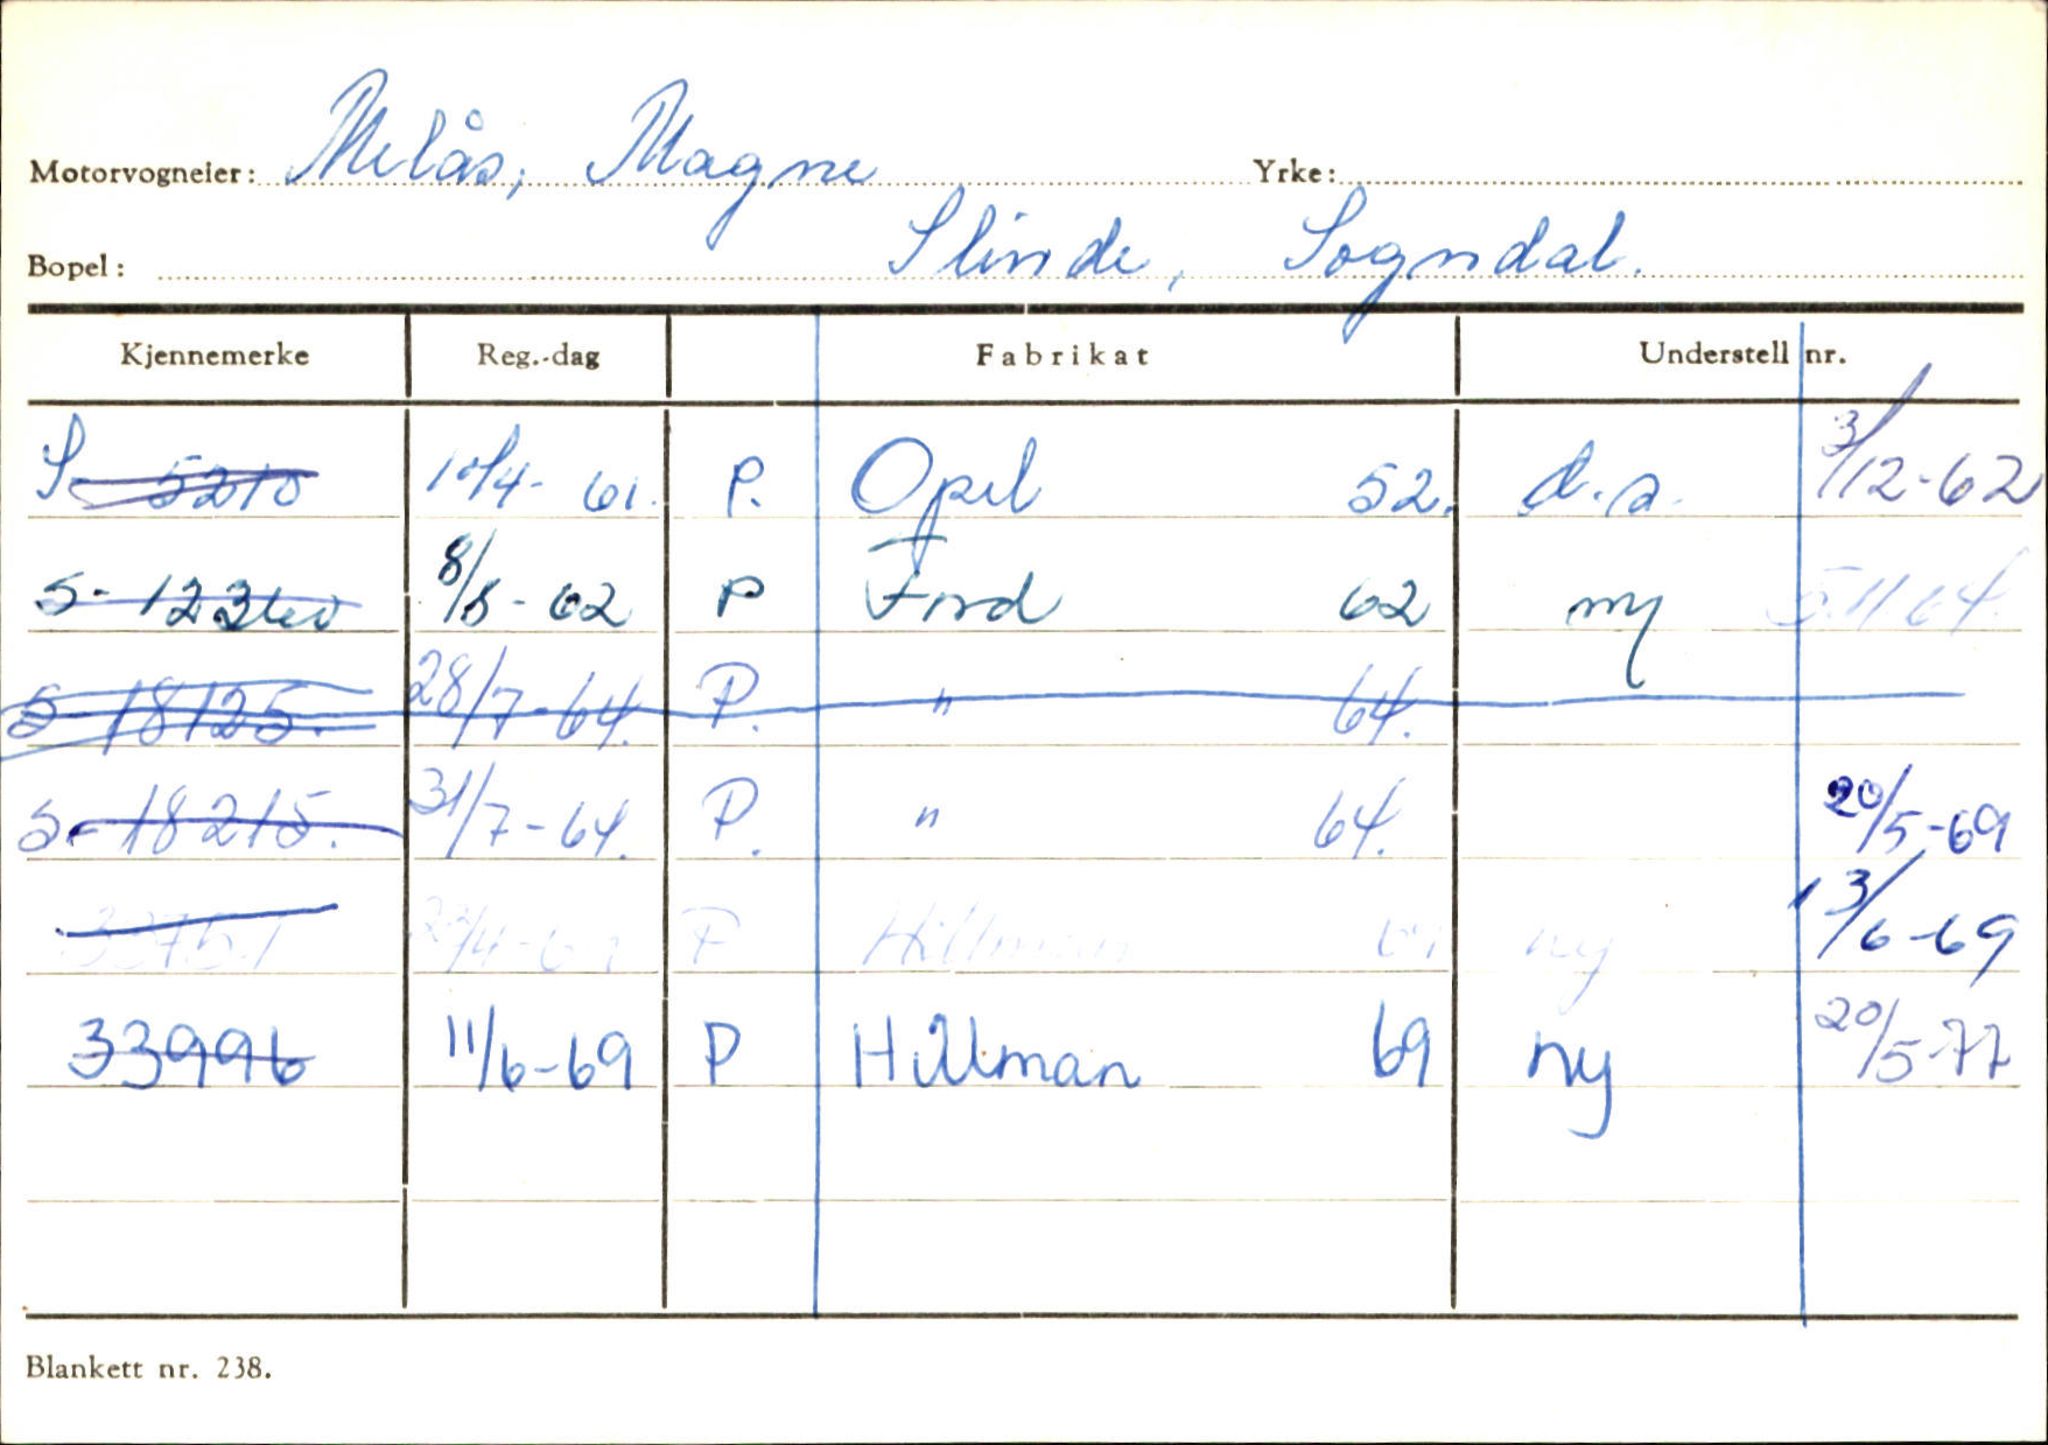 Motorvogneier: Melås, Magne Yrke:
Bopel: Slinde, Sogndal.
Kjennemerke Reg.-dag Fabrikat Understell nr.
S- 5210 10/4-61. P. Opel 52. d.s. 3/12-62
S- 8/8-62 P Ford 62 ny 5.11.64.
S-18125. 28/7-64. P. " 64.
S-18215. 31/7-64. P. " 64. 20/5-69
P Hillman ny 3/6-69
33996 11/6-69 P Hillman 69 ny 20/5-77
Blankett nr. 238.